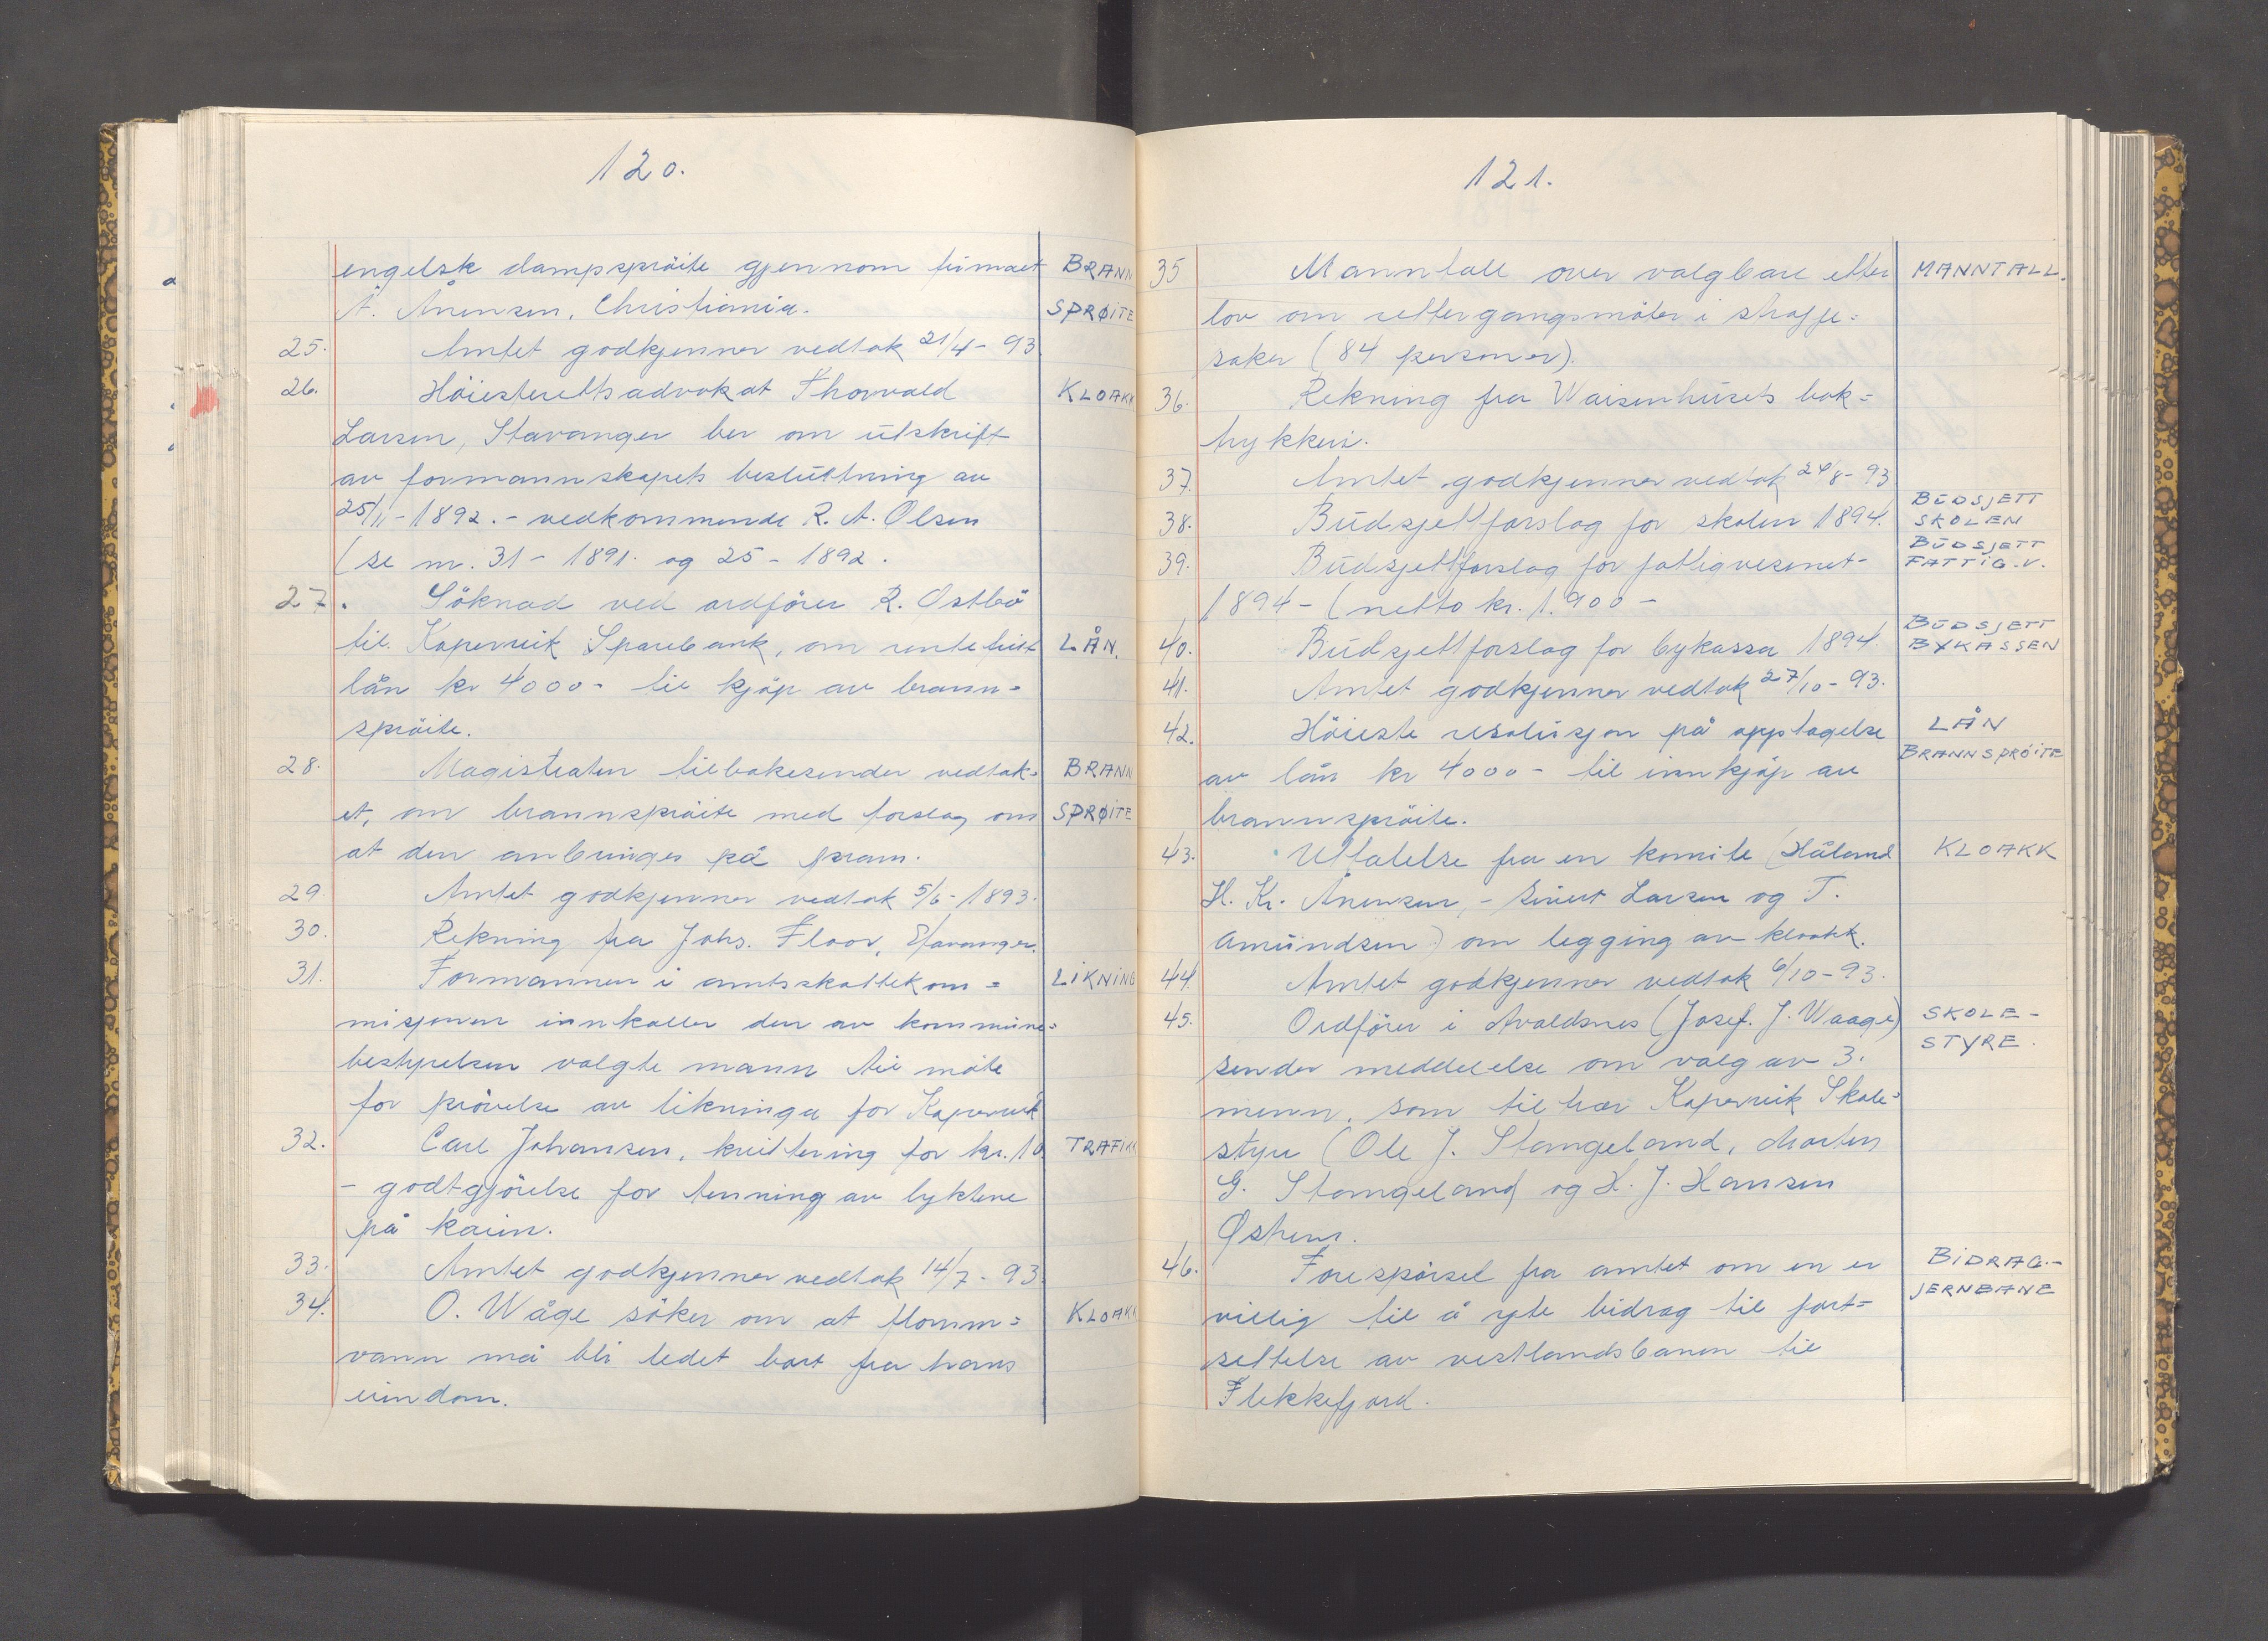 120.
engelsk dampspröite gjennom firmaet BRANN
A. Ånensen, Christiania. SPRØITE
25. Amtet godkjenner vedtak 21/4 - 93
26. Höiesterettsadvokat Thorvald KLOAKK
Larsen, Stavanger ber om utskrift
av formannskapets besluttning av
25/11 - 1892. - vedkommende R. A. Olsen
(se nr. 31 - 1891. og 25 - 1892.
27. Söknad ved ordförer R. Østbö
til Kopervik Sparebank, om rentefritt LÅN.
lån kr 4000 - til kjöp av brann=
spröite.
28. Magistraten tilbakesender vedtak= BRANN
et, om brannspröite med forslag om SPRØITE
at den anbringes på pram.
29. Amtet godkjenner vedtak 5/6 - 1893.
30. Rekning fra Johs. Floor, Stavanger.
31. Formannen i amtsskattekom= LIKNING
misjonen innkaller den av kommune=
bestyrelsen valgte mann til möte
for prövelse av likninga for Kopervik
32. Carl Johansen, kvittering for kr. 10 TRAFIKK
- godtgjörelse for tenning av lyktene
på kaien.
33. Amtet godkjenner vedtak 14/7 - 93.
34. O. Wåge söker om at flomm= KLOAKK
vann må bli ledet bort fra hans
eiendom.
121.
35 Manntall over valgbare etter MANNTALL.
lov om rettergangsmöter i straffe=
saker (84 personer).
36. Rekning fra Waisenhusets bok=
trykkeri.
37. Amtet godkjenner vedtak 24/8 - 93
BUDSJETT
38. Budsjettforslag for skolen 1894. SKOLEN
BUDSJETT
39. Budsjettforslag for fattigvesenet- FATTIG.V.
1894 - (netto kr. 1.900 -
BUDSJETT
40. Budsjettforslag for bykassa 1894. BYKASSEN
41. Amtet godkjenner vedtak 27/10 - 93.
42. Höieste resolusjon på opptagelse LÅN
BRANNSPRÖITE
av lån kr 4000 - til innkjöp av
brannspröite.
43. Uttalelse fra en komite (Håland KLOAKK
H. Kr. Ånensen, - Sivert Larsen og T.
Amundsen) om legging av kloakk.
44. Amtet godkjenner vedtak 6/10 - 93.
45. Ordförer i Avaldsnes (Josef. J. Waage) SKOLE-
STYRE.
sender meddelelse om valg av 3.
menn, som tiltrer Kopervik Skole=
styre (Ole J. Stangeland, Morten
G. Stangeland og H. J. Hansen
Østrem.
46. Forespörsel fra amtet om en er BIDRAG.-
villig til å yte bidrag til fort= JERNBANE
settelse av vestlandsbanen til
Flekkefjord.